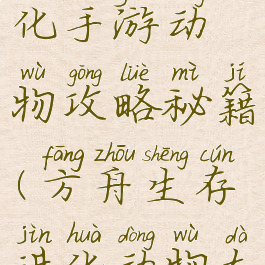 化手游动
wù gōng lüè mì jí
物攻略秘籍
fāng zhōu shēng cún
(方舟生存
jìn huà dòng wù dà